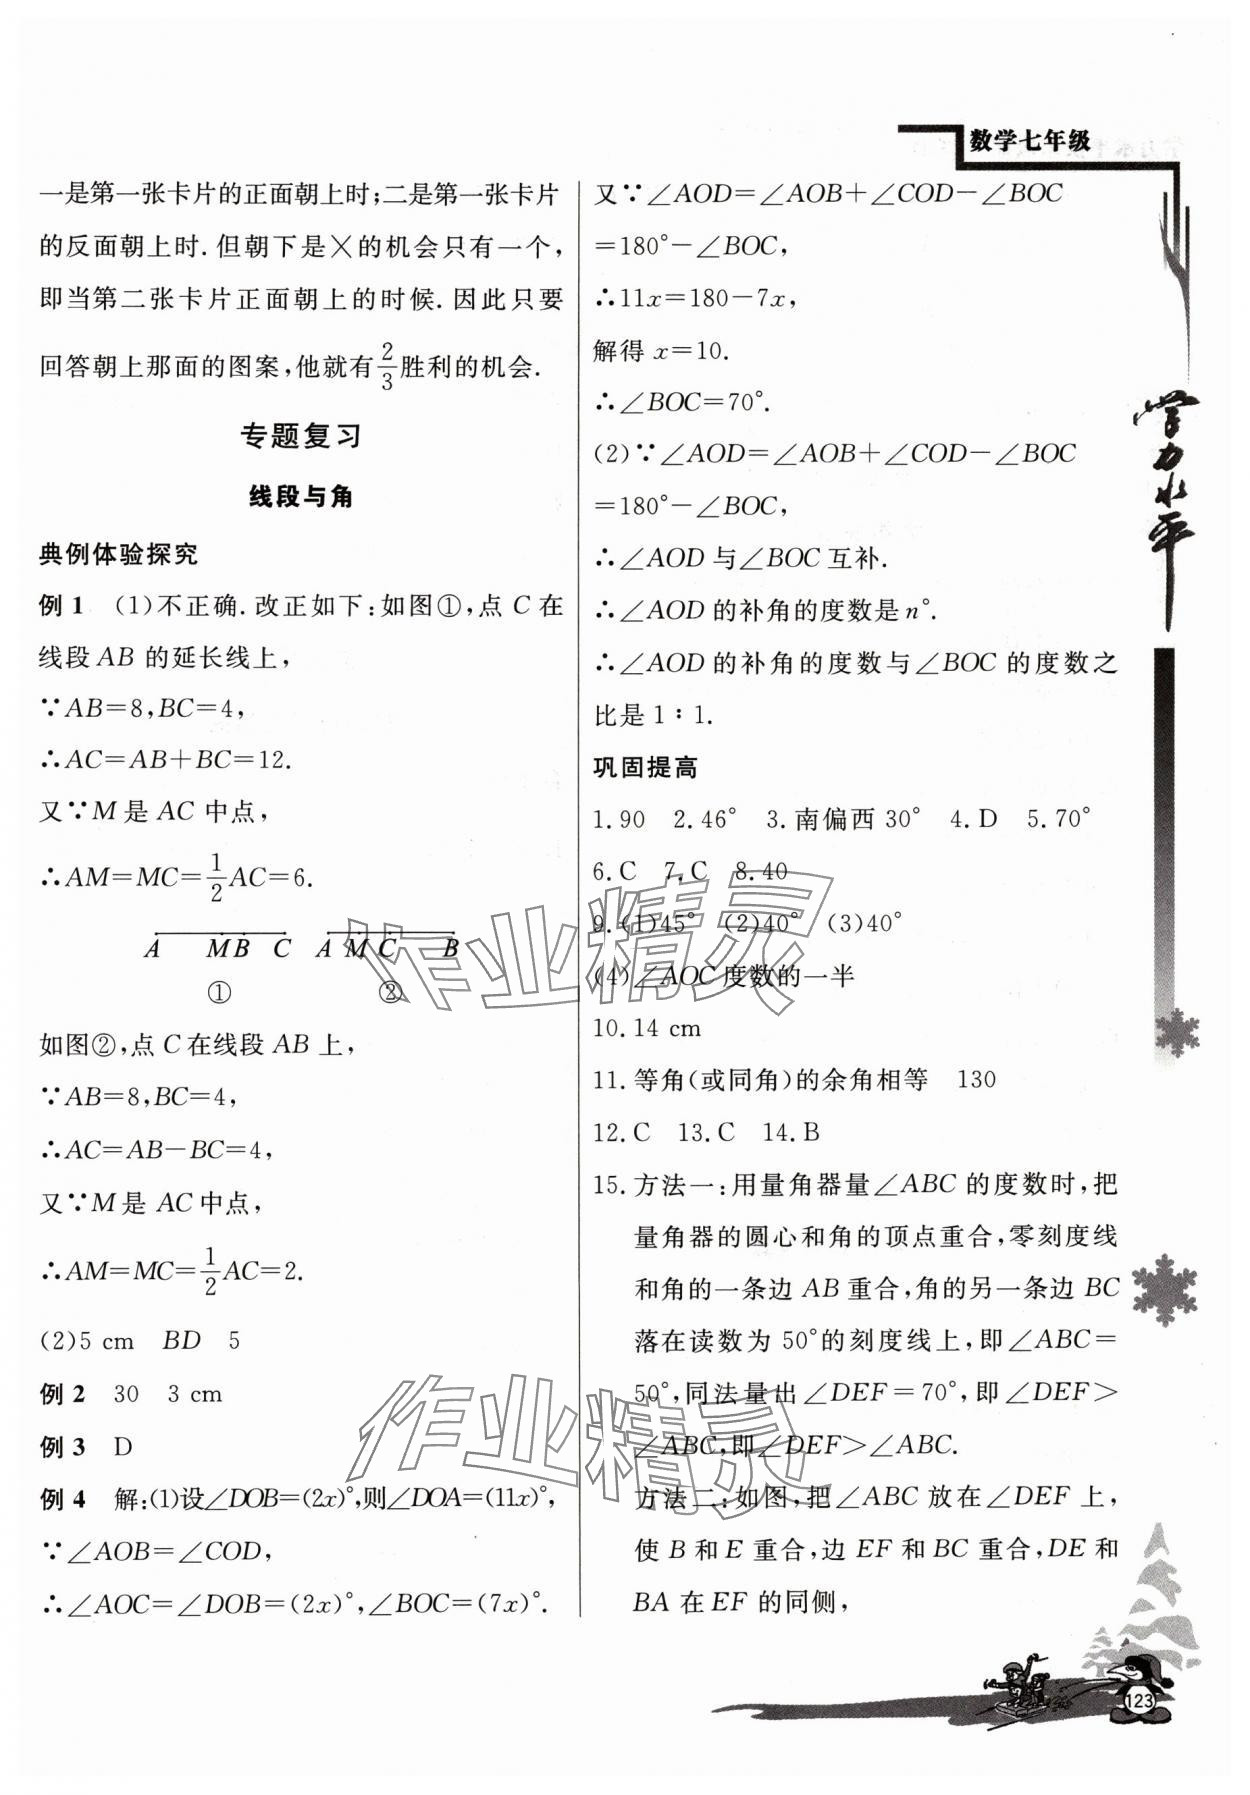 数学七年级
一是第一张卡片的正面朝上时;二是第一张卡片
的反面朝上时.但朝下是╳的机会只有一个,
即当第二张卡片正面朝上的时候.因此只要
回答朝上那面的图案,他就有2/3胜利的机会.
专题复习
线段与角
典例体验探究
例 1 (1)不正确.改正如下:如图①,点 C 在
线段 AB 的延长线上,
∵AB=8,BC=4,
∴AC=AB+BC=12.
又∵M 是 AC 中点,
∴AM=MC=1/2AC=6.
A M B C A M C B
① ②
如图②,点 C 在线段 AB 上,
∵AB=8,BC=4,
∴AC=AB−BC=4,
又∵M 是 AC 中点,
∴AM=MC=1/2AC=2.
(2)5 cm BD 5
例 2 30 3 cm
例 3 D
例 4 解:(1)设∠DOB=(2x)°,则∠DOA=(11x)°,
∵∠AOB=∠COD,
∴∠AOC=∠DOB=(2x)°,∠BOC=(7x)°.
又∵∠AOD=∠AOB+∠COD−∠BOC
=180°−∠BOC,
∴11x=180−7x,
解得 x=10.
∴∠BOC=70°.
(2)∵∠AOD=∠AOB+∠COD−∠BOC
=180°−∠BOC,
∴∠AOD 与∠BOC 互补.
∴∠AOD 的补角的度数是 n°.
∴∠AOD 的补角的度数与∠BOC 的度数之
比是 1∶1.
巩固提高
1.90 2.46° 3.南偏西 30° 4.D 5.70°
6.C 7.C 8.40
9.(1)45° (2)40° (3)40°
(4)∠AOC 度数的一半
10.14 cm
11.等角(或同角)的余角相等 130
12.C 13.C 14.B
15.方法一:用量角器量∠ABC 的度数时,把
量角器的圆心和角的顶点重合,零刻度线
和角的一条边 AB 重合,角的另一条边 BC
落在读数为 50°的刻度线上,即∠ABC=
50°,同法量出∠DEF=70°,即∠DEF>
∠ABC,即∠DEF>∠ABC.
方法二:如图,把∠ABC 放在∠DEF 上,
使 B 和 E 重合,边 EF 和 BC 重合,DE 和
BA 在 EF 的同侧,
学力水平
123
作业精灵
作业精灵